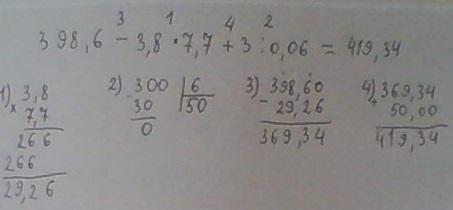 3 1 4 2
398,6 − 3,8 · 7,7 + 3 : 0,06 = 419,34
1) 3,8 2) 300 6 3) 398,60 4) 369,34
x 7,7 − 30 50 − 29,26 + 50,00
266 0 369,34 419,34
266
29,26